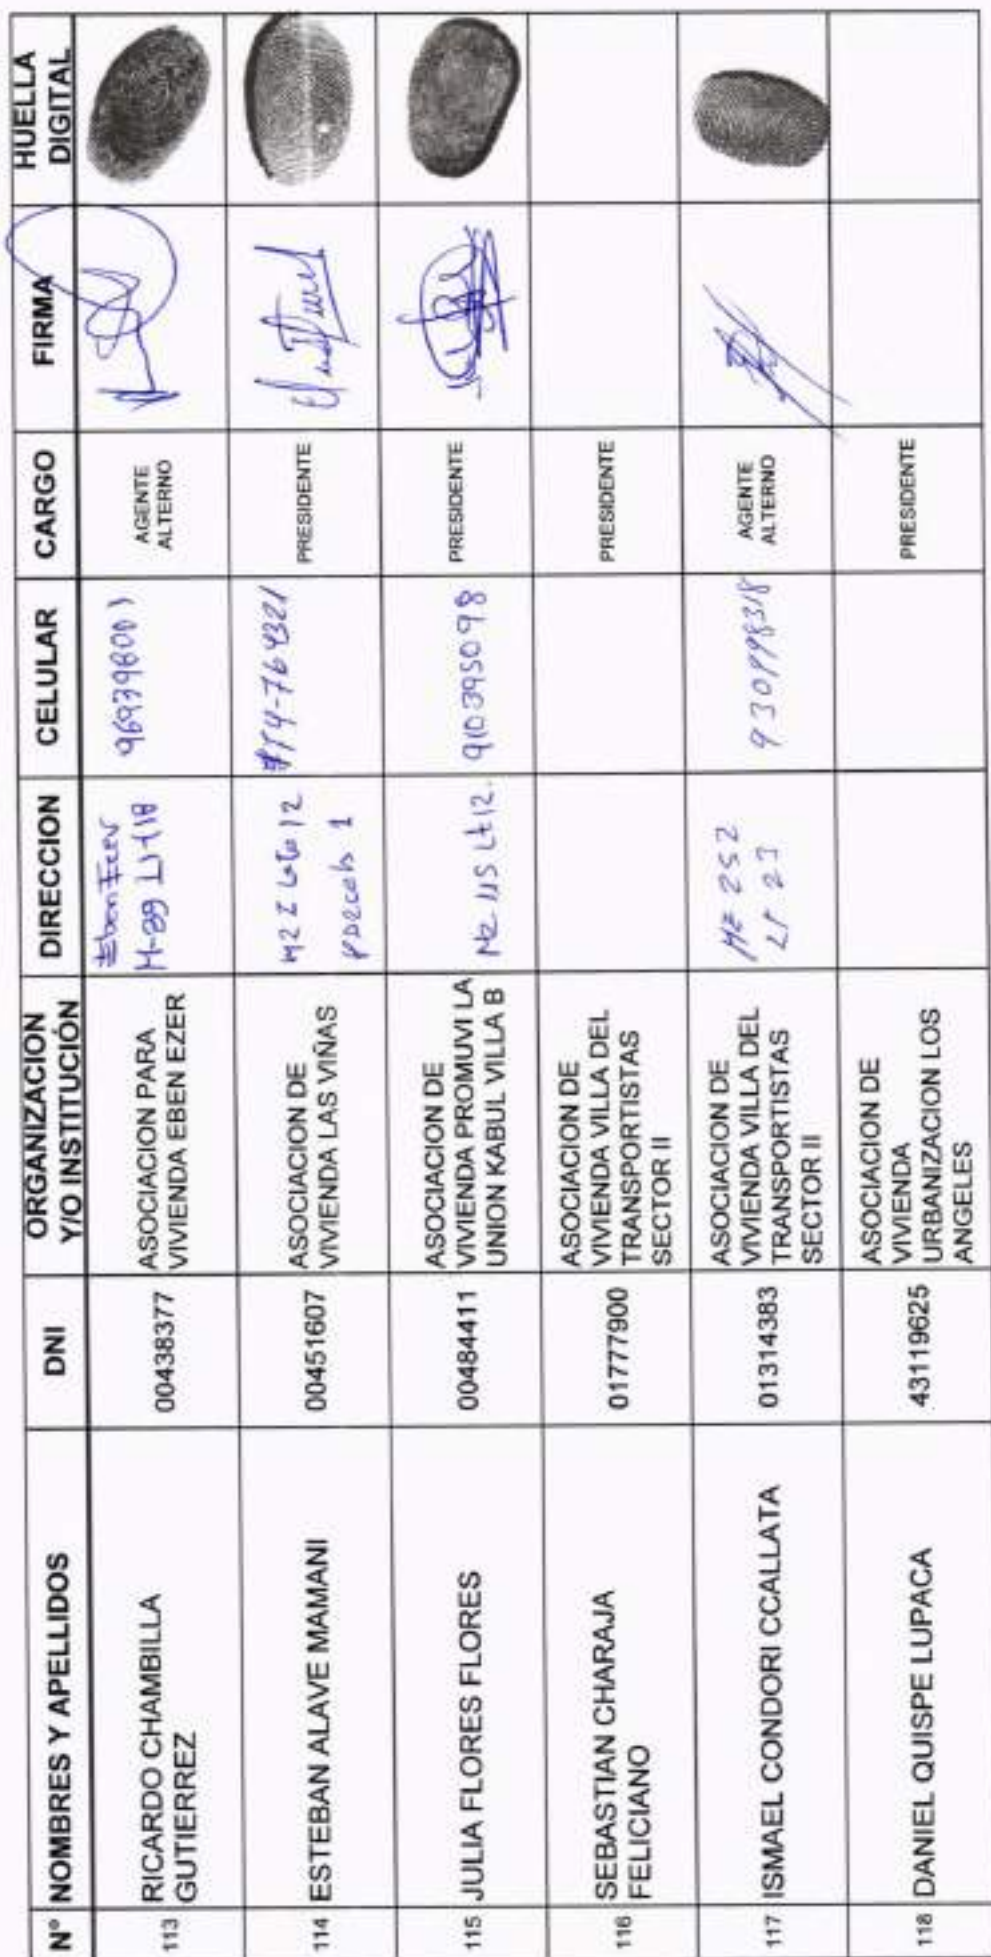 N° NOMBRES Y APELLIDOS DNI ORGANIZACION Y/O INSTITUCIÓN DIRECCION CELULAR CARGO FIRMA HUELLA DIGITAL
113 RICARDO CHAMBILLA GUTIERREZ 00438377 ASOCIACION PARA VIVIENDA EBEN EZER AGENTE ALTERNO
114 ESTEBAN ALAVE MAMANI 00451607 ASOCIACION DE VIVIENDA LAS VIÑAS PRESIDENTE
115 JULIA FLORES FLORES 00484411 ASOCIACION DE VIVIENDA PROMUVI LA UNION KABUL VILLA B Mz 115 Lt 12. 910395098 PRESIDENTE
116 SEBASTIAN CHARAJA FELICIANO 01777900 ASOCIACION DE VIVIENDA VILLA DEL TRANSPORTISTAS SECTOR II PRESIDENTE
117 ISMAEL CONDORI CCALLATA 01314383 ASOCIACION DE VIVIENDA VILLA DEL TRANSPORTISTAS SECTOR II Mz 252 LT 23 AGENTE ALTERNO
118 DANIEL QUISPE LUPACA 43119625 ASOCIACION DE VIVIENDA URBANIZACION LOS ANGELES PRESIDENTE